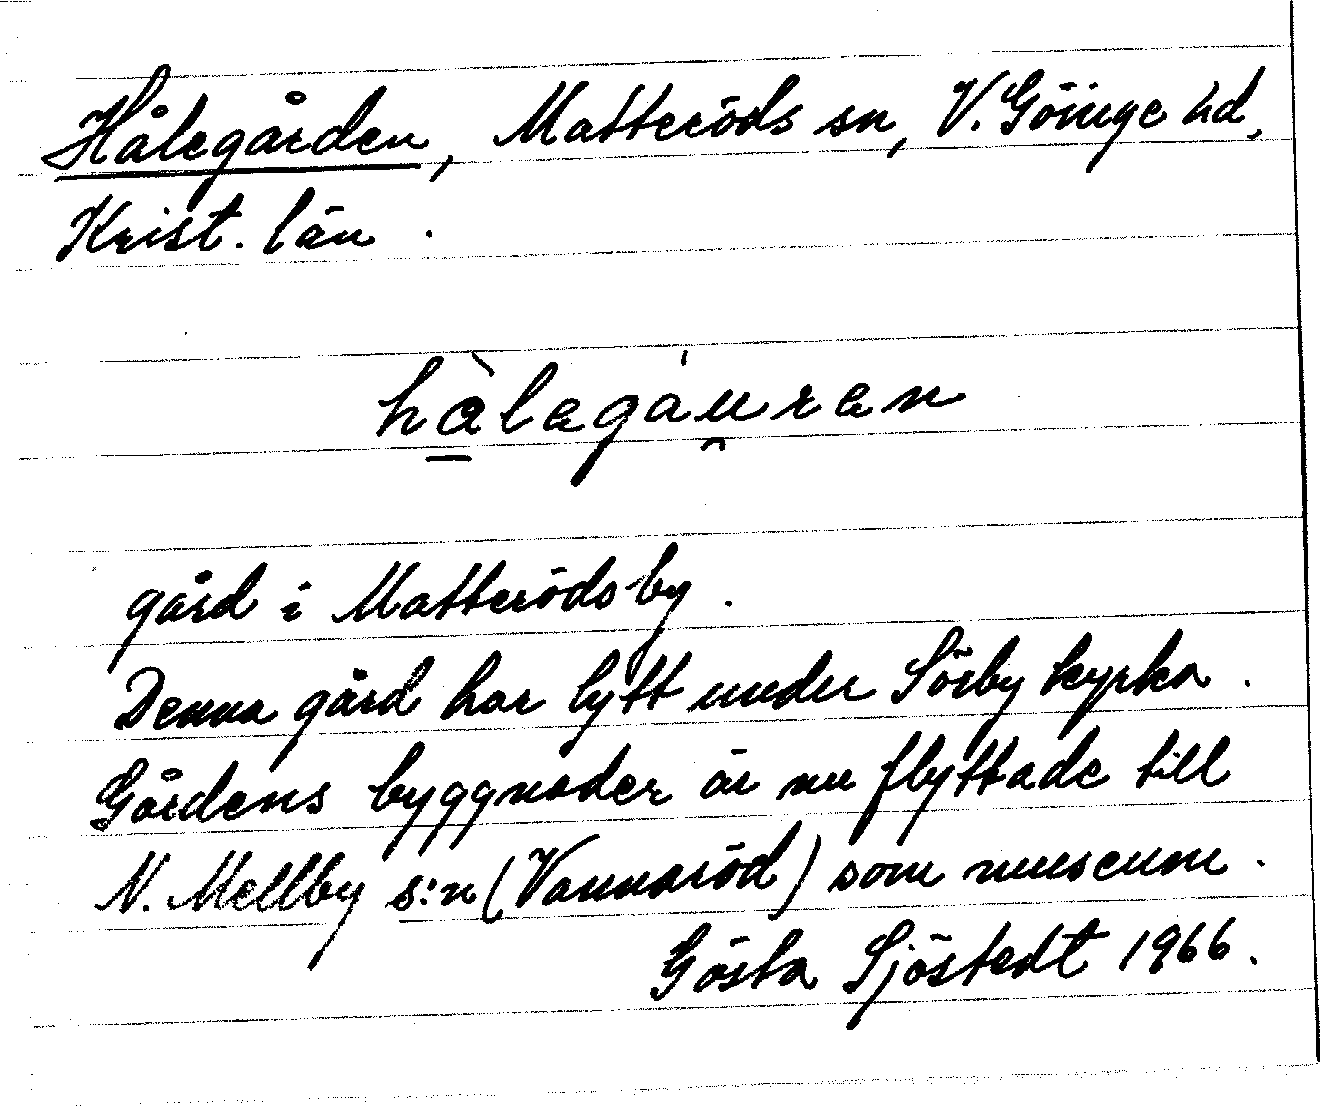 Hålegården, Matteröds sn, V. Göinge hd,
Krist. län.
hàlegáu̯ran
gård i Matteröds by.
Denna gård har lytt under Sörby kyrka.
Gårdens byggnader är nu flyttade till
N. Mellby s:n (Vannaröd) som museum.
Gösta Sjöstedt 1966.